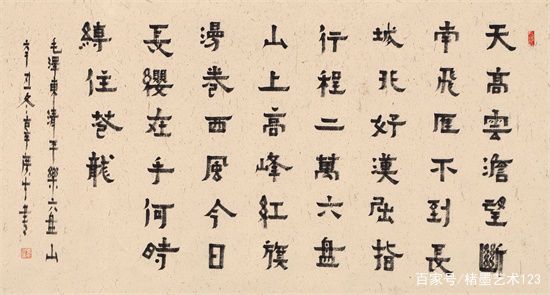 天高雲澹望斷
南飛雁不到長
城非好漢屈指
行程二萬六盤
山上高峰紅旗
漫卷西風今日
長纓在手何時
縛住蒼龍
毛澤東清平樂六盤山
辛丑
百家号/楮墨艺术123